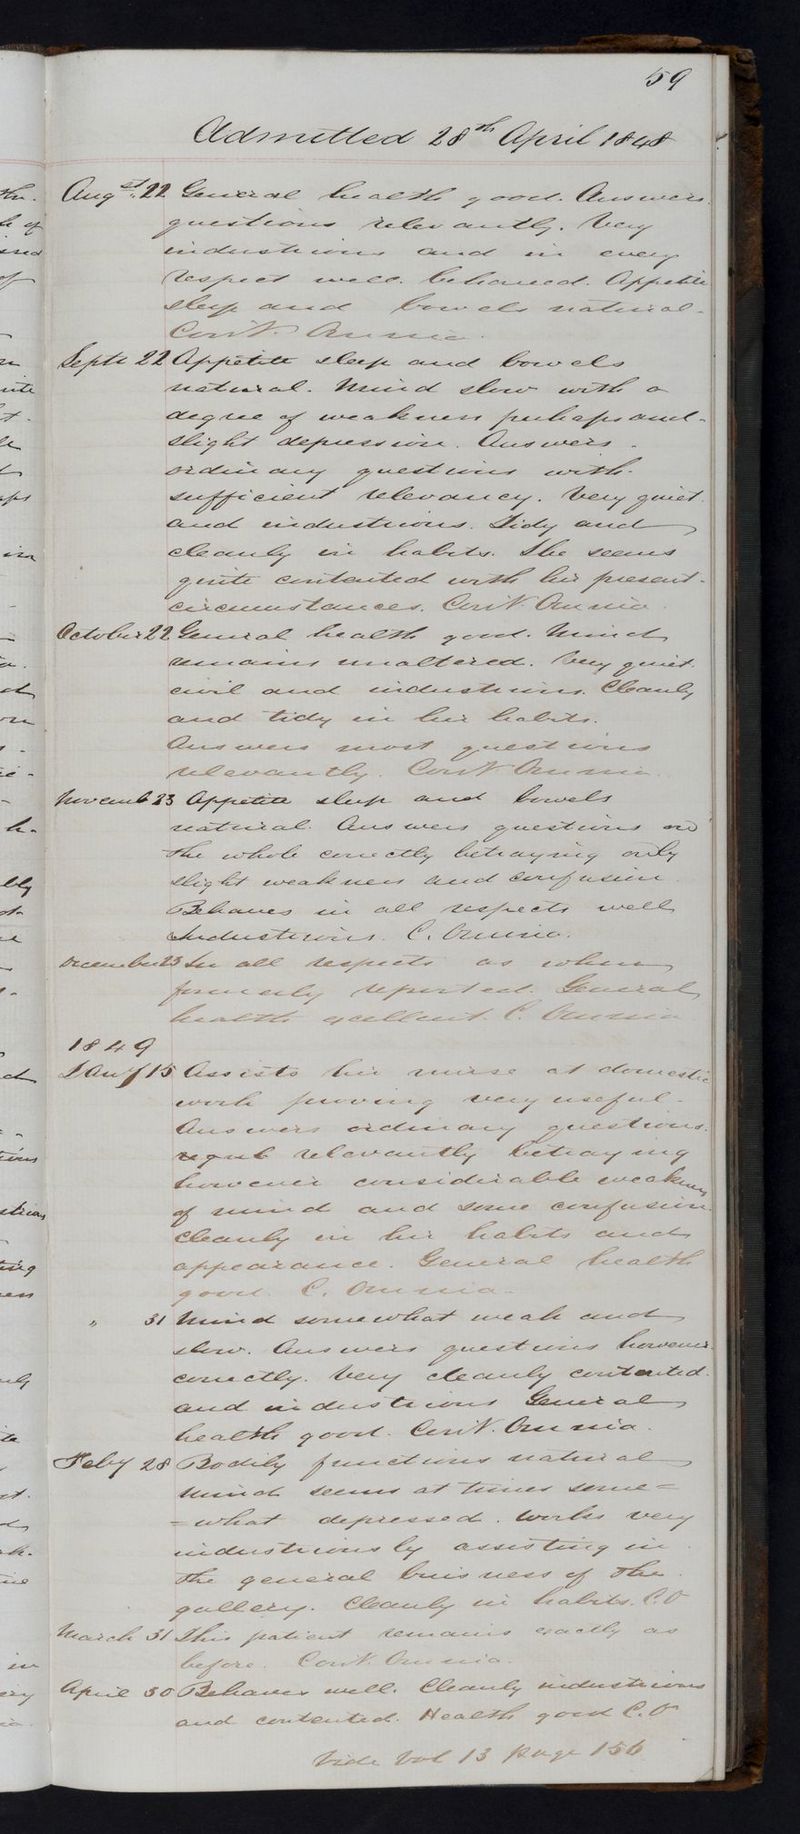 59
Admitted 28th April 1848
Augst. 22 General health good. Answers
questions relevantly. Very
industrious and in every
respect well behaved. Appetite
sleep and bowels natural.
Cont. Omnia.
Septr 22 Appetite sleep and bowels
natural. Mind slow with a
degree of weakness perhaps and
slight depression. Answers
ordinary questions with
sufficient relevancy. Very quiet
and industrious. Tidy and
cleanly in habits. She seems
quite contented with her present
circumstances. Cont. Omnia.
October 22 General health good. Mind
remains unaltered. Very quiet
civil and industrious. Cleanly
and tidy in her habits.
Answers most questions
relevantly. Cont Omnia.
Novemb 23 Appetite sleep and bowels
natural. Answers questions on
the whole correctly betraying only
slight weakness and confusion
Behaves in all respects well
Industrious. C. Omnia.
December 23 In all respects as when
formerly reported. General
health excellent. C. Omnia
1849
Jany 15 Assists her nurse at domestic
work proving very useful.
Answers ordinary questions
relevantly betraying
however considerable weakness
of mind and some confusion.
Cleanly in her habits and
appearance. General health
good. C. Omnia.
" 31 Mind somewhat weak and
slow. Answers questions however
correctly. Very cleanly contented
and industrious General
health good. Cont. Omnia.
Feby 28 Bodily functions natural
Mind seems at times some=
=what depressed. Works very
industriously assisting in
the general buisness of the
gallery. Cleanly in habits. C.O
March 31 This patient remains exactly as
before. Cont. Omnia.
April 30 Behaves well. Cleanly industrious
and contented. Health good C.O
Vide Vol 13 page 156